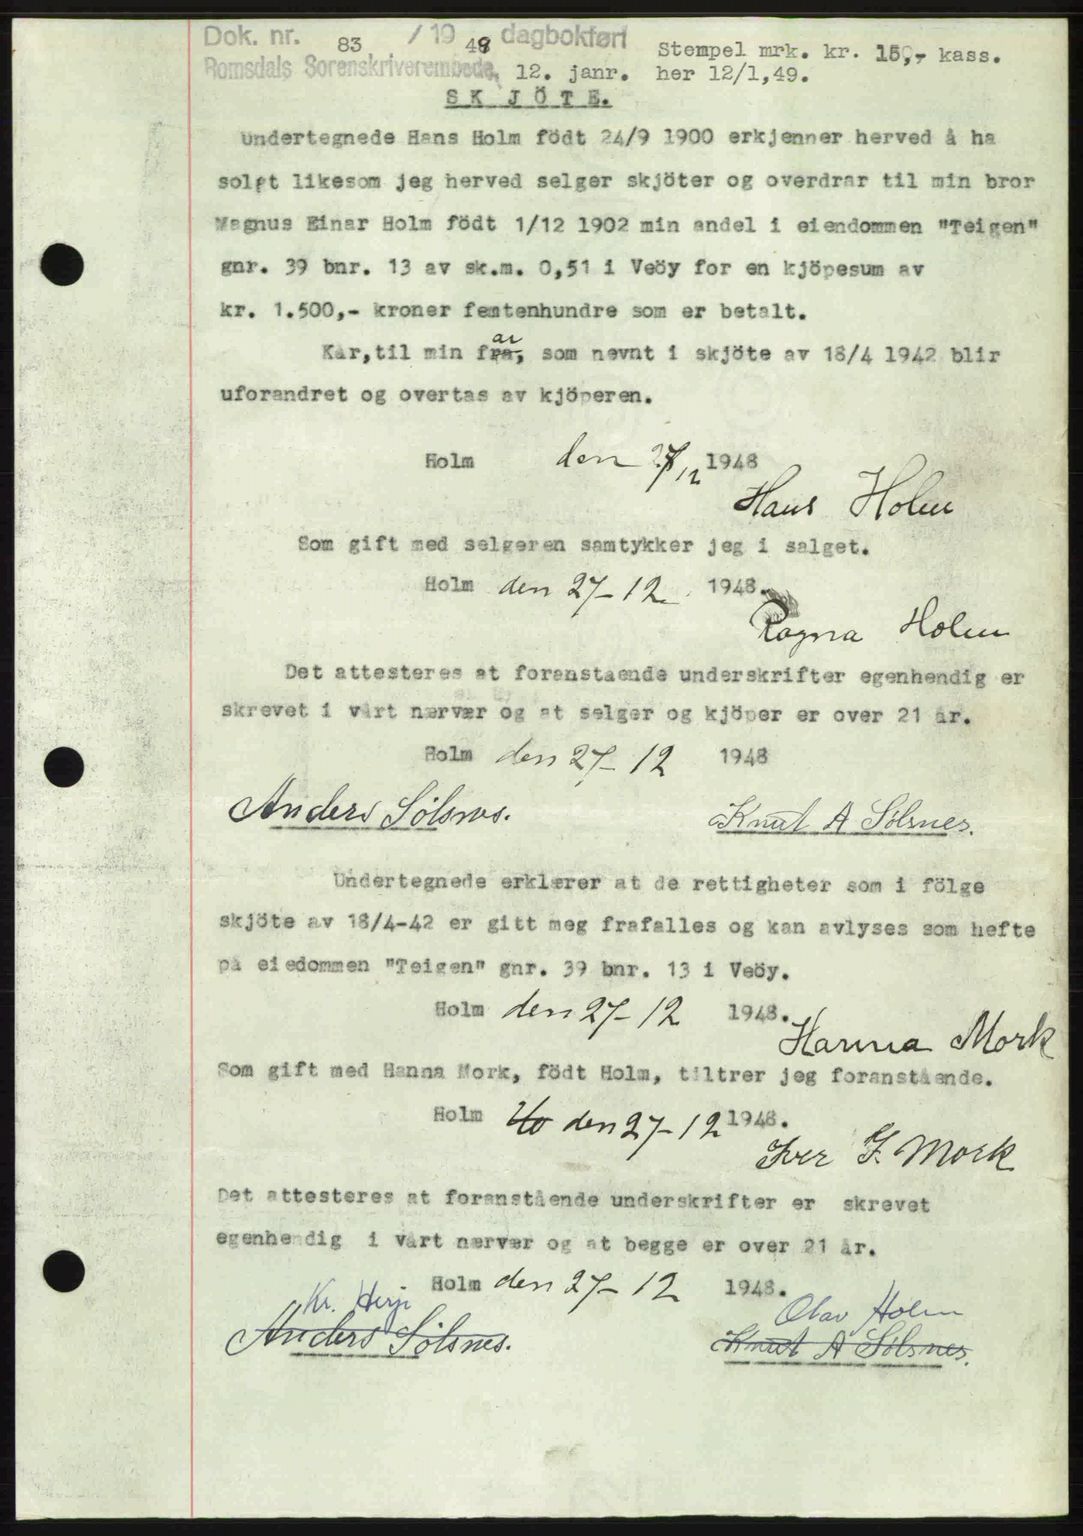 Dok. nr. 83 / 19 49 dagbokført Stempel mrk. kr. 15,- kass.
Romsdals Sorenskriverembede, 12. janr. her 12/1,49.
S K J Ö T E.
Undertegnede Hans Holm födt 24/9 1900 erkjenner herved å ha
solgt likesom jeg herved selger skjöter og overdrar til min bror
Magnus Einar Holm födt 1/12 1902 min andel i eiendommen "Teigen"
gnr. 39 bnr. 13 av sk.m. 0,51 i Veöy for en kjöpesum av
kr. 1.500,- kroner femtenhundre som er betalt.
Kår,til min far, som nevnt i skjöte av 18/4 1942 blir
uforandret og overtas av kjöperen.
Holm den 27/12 1948
Hans Holm
Som gift med selgeren samtykker jeg i salget.
Holm den 27-12 1948.
Ragna Holm
Det attesteres at foranstaende underskrifter egenhendig er
skrevet i vårt nærvær og at selger og kjöper er over 21 år.
Holm den 27-12 1948
Anders Sølsnes. Knut A Sølsnes.
Undertegnede erklærer at de rettigheter som i fölge
skjöte av 18/4-42 er gitt meg frafalles og kan avlyses som hefte
på eiedommen "Teigen" gnr. 39 bnr. 13 i Veöy.
Holm den 27-12 1948.
Hanna Mork
Som gift med Hanna Mork, födt Holm, tiltrer jeg foranstående.
Holm Ho den 27-12 1948.
Iver J. Mork
Det attesteres at foranstående underskrifter er skrevet
egenhendig i vårt nærvær og at begge er over 21 år.
Holm den 27-12 1948.
Kr. Herje Olav Holm
Anders Sølsnes. Knut A Sølsnes.